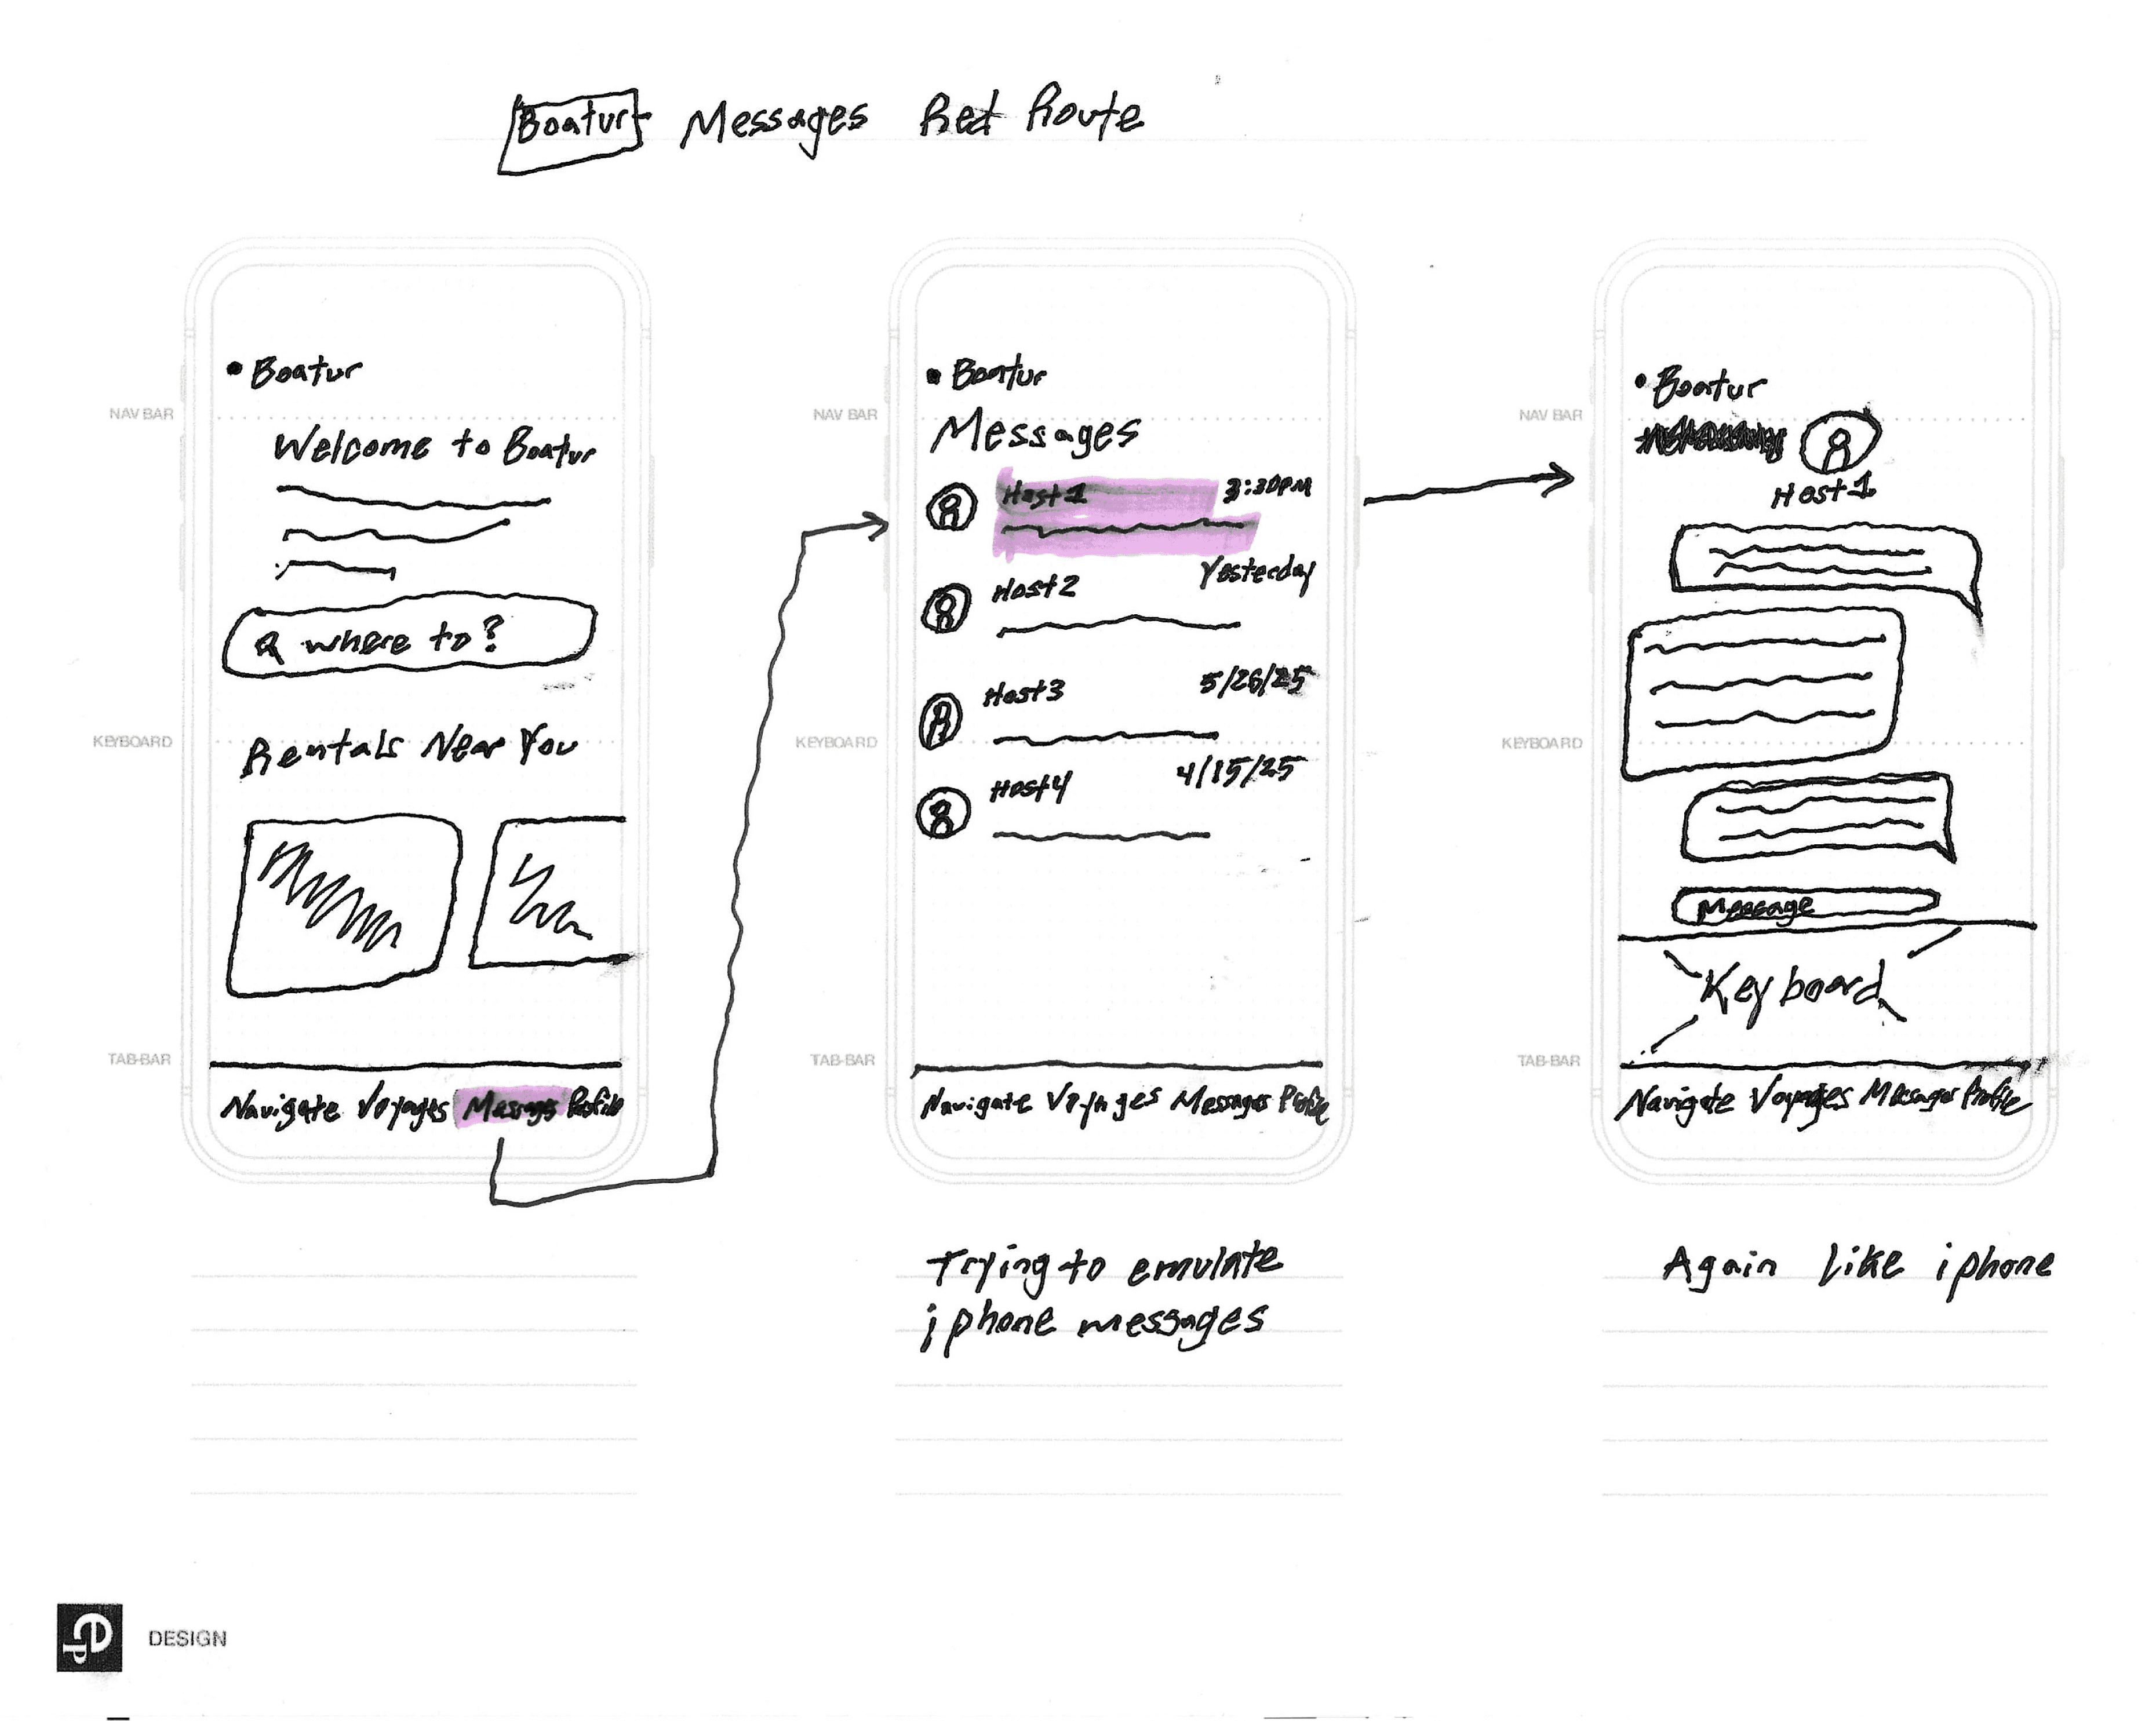 Boatur Messages Red Route
• Boatur
NAV BAR
Welcome to Boatur
where to?
KEYBOARD
Rentals Near You
TAB-BAR
Navigate Voyages Messages Profile
• Boatur
NAV BAR
Messages
Host 1 3:30PM
Yesterday
Host 2
Host 3 5/26/25
KEYBOARD
Host 4 4/15/25
TAB-BAR
Navigate Voyages Messages Profile
Trying to emulate
iphone messages
• Boatur
NAV BAR
Host 1
KEYBOARD
Message
Keyboard
TAB-BAR
Navigate Voyages Messages Profile
Again like iphone
DESIGN